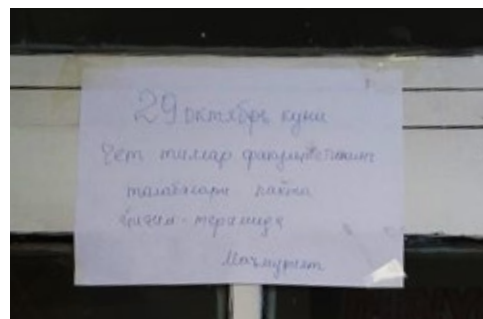 29 октябрь куни
Чет тиллар факультетининг
талабалари пахта
йиғим-теримида
Маъмурият